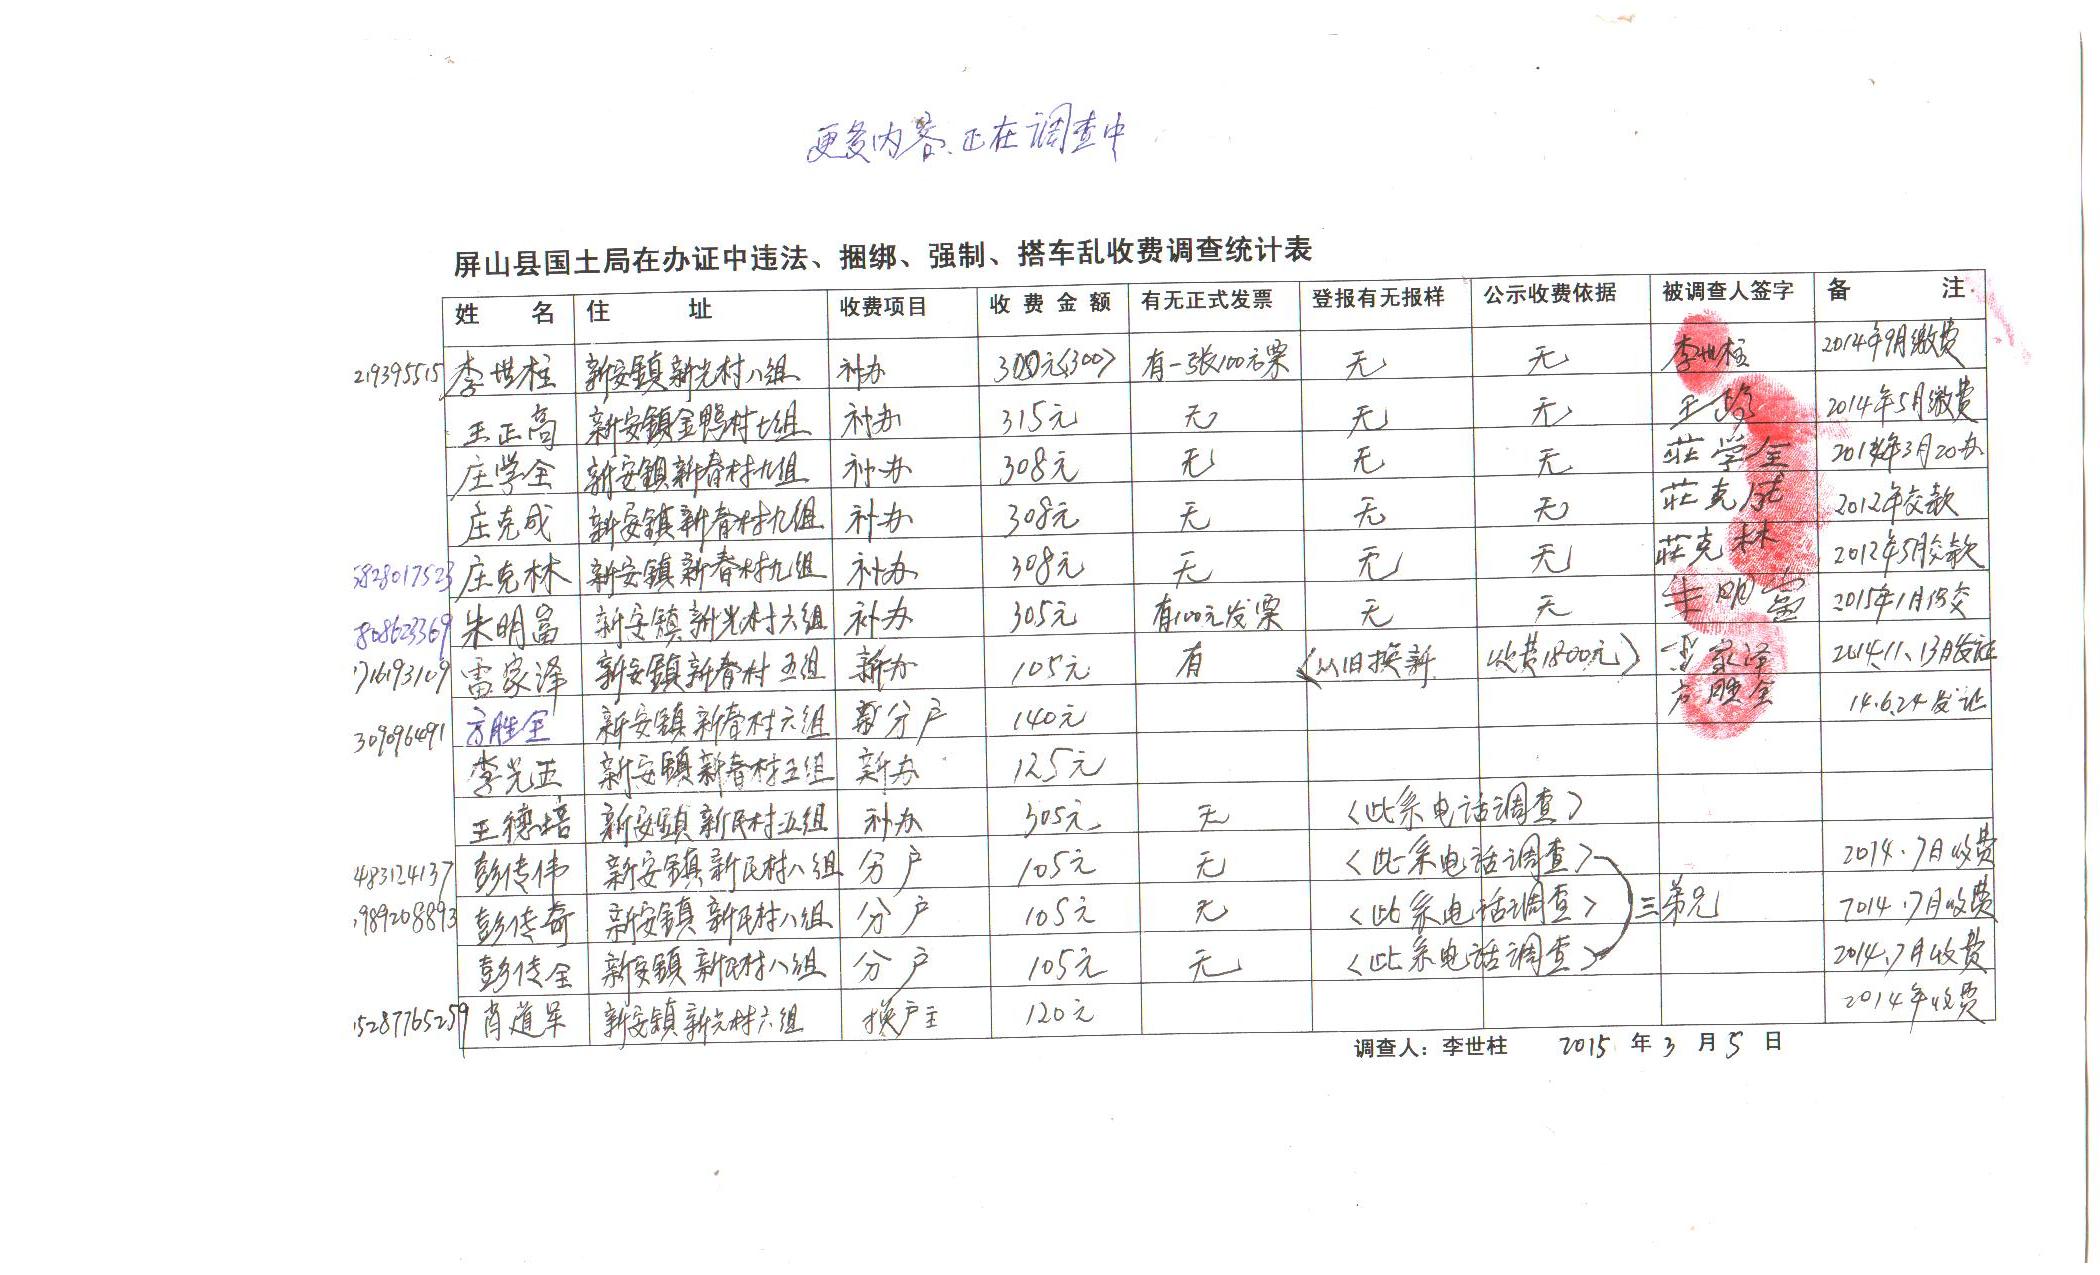 更多内容.正在调查中
屏山县国土局在办证中违法、捆绑、强制、搭车乱收费调查统计表
姓 名 住 址 收费项目 收费金额 有无正式发票 登报有无报样 公示收费依据 被调查人签字 备 注
219395515 李世柱 新安镇新光村八组 补办 300元<300> 有一张100元票 无 无 李世柱 2014年9月缴费
王正高 新安镇金鸭村七组 补办 315元 无 无 无 王 2014年5月缴费
庄学全 新安镇新春村九组 补办 308元 无 无 无 莊学全 年3月20办
庄克成 新安镇新春村九组 补办 308元 无 无 无 莊克成 2012年交款
5828017523 庄克林 新安镇新春村九组 补办 308元 无 无 无 莊克林 2012年5月交款
808623369 朱明富 新安镇新光村六组 补办 305元 有100元发票 无 无 朱明富 2015年1月18交
716193109 雷家泽 新安镇新春村五组 新办 105元 有 <以旧换新 收费1800元> 雷家泽 2014.11、13月发证
309096491 方胜全 新安镇新春村六组 分户 140元 方胜全 14.6.24发证
李光正 新安镇新春村五组 新办 125元
王德培 新安镇新民村五组 补办 305元 无 <此系电话调查>
483124137 彭传伟 新安镇新民村八组 分户 105元 无 <此系电话调查> 2014.7月收费
989208893 彭传奇 新安镇新民村八组 分户 105元 无 <此系电话调查> 三弟兄 2014.7月收费
彭传全 新安镇新民村八组 分户 105元 无 <此系电话调查> 2014.7月收费
15287765259 肖道军 新安镇新光村六组 换户主 120元 2014年收费
调查人：李世柱 2015 年 3 月 5 日